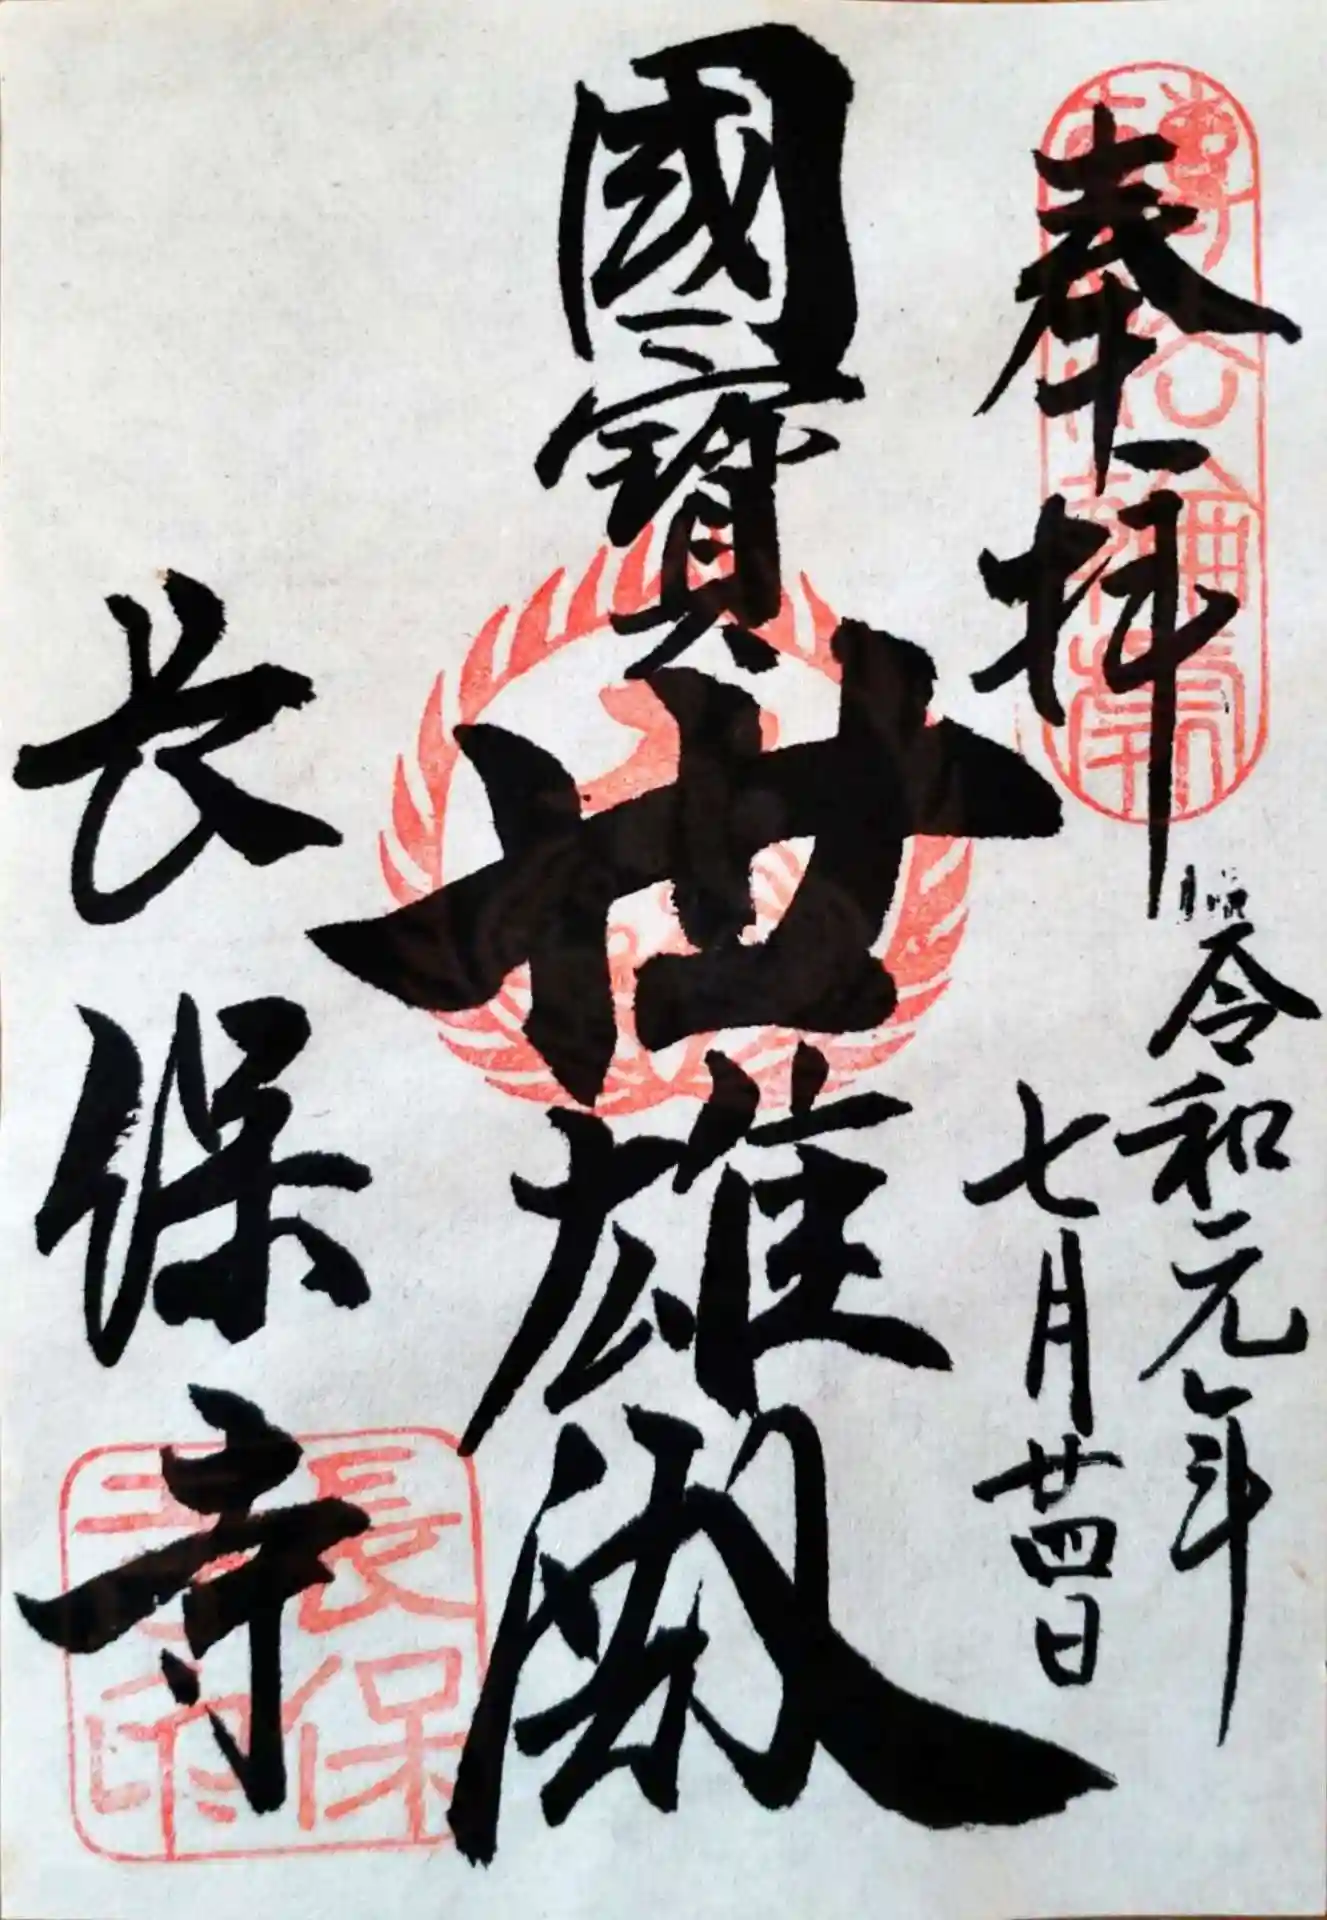 奉拝
令和元年
七月廿四日
國寶
世雄閣
長保寺
長保寺印